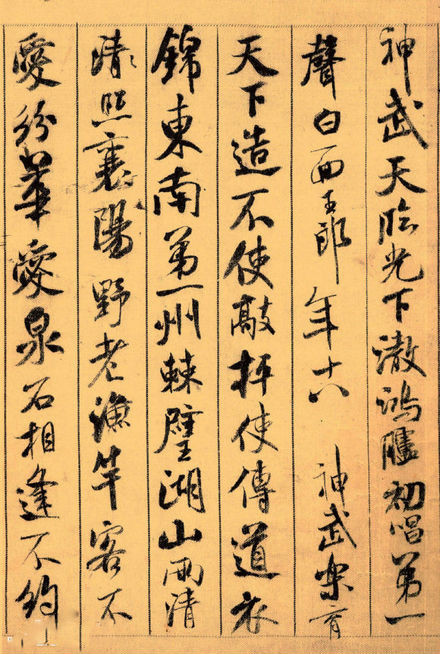 神武天臨光下澈鴻臚初唱第一
聲白面玉郎年十八神武樂育
天下造不使敲枰使傳道衣
錦東南第一州棘璧湖山兩清
清照襄陽野老漁竿客不
愛紛華愛泉石相逢不約